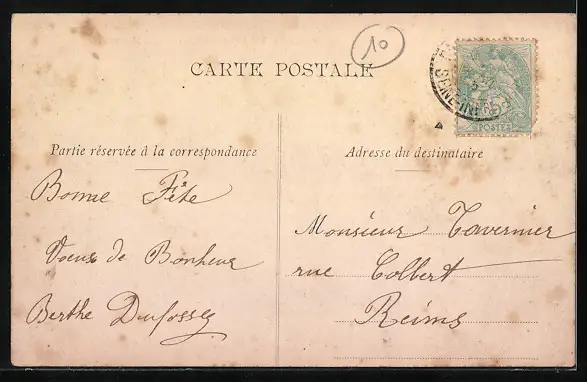 10
CARTE POSTALE
SEINE-INFRE
5
POSTES
Partie réservée à la correspondance
Adresse du destinataire
Bonne Fête
Voeux de Bonheur
Berthe Dufossey
Monsieur Tavernier
rue Colbert
Reims